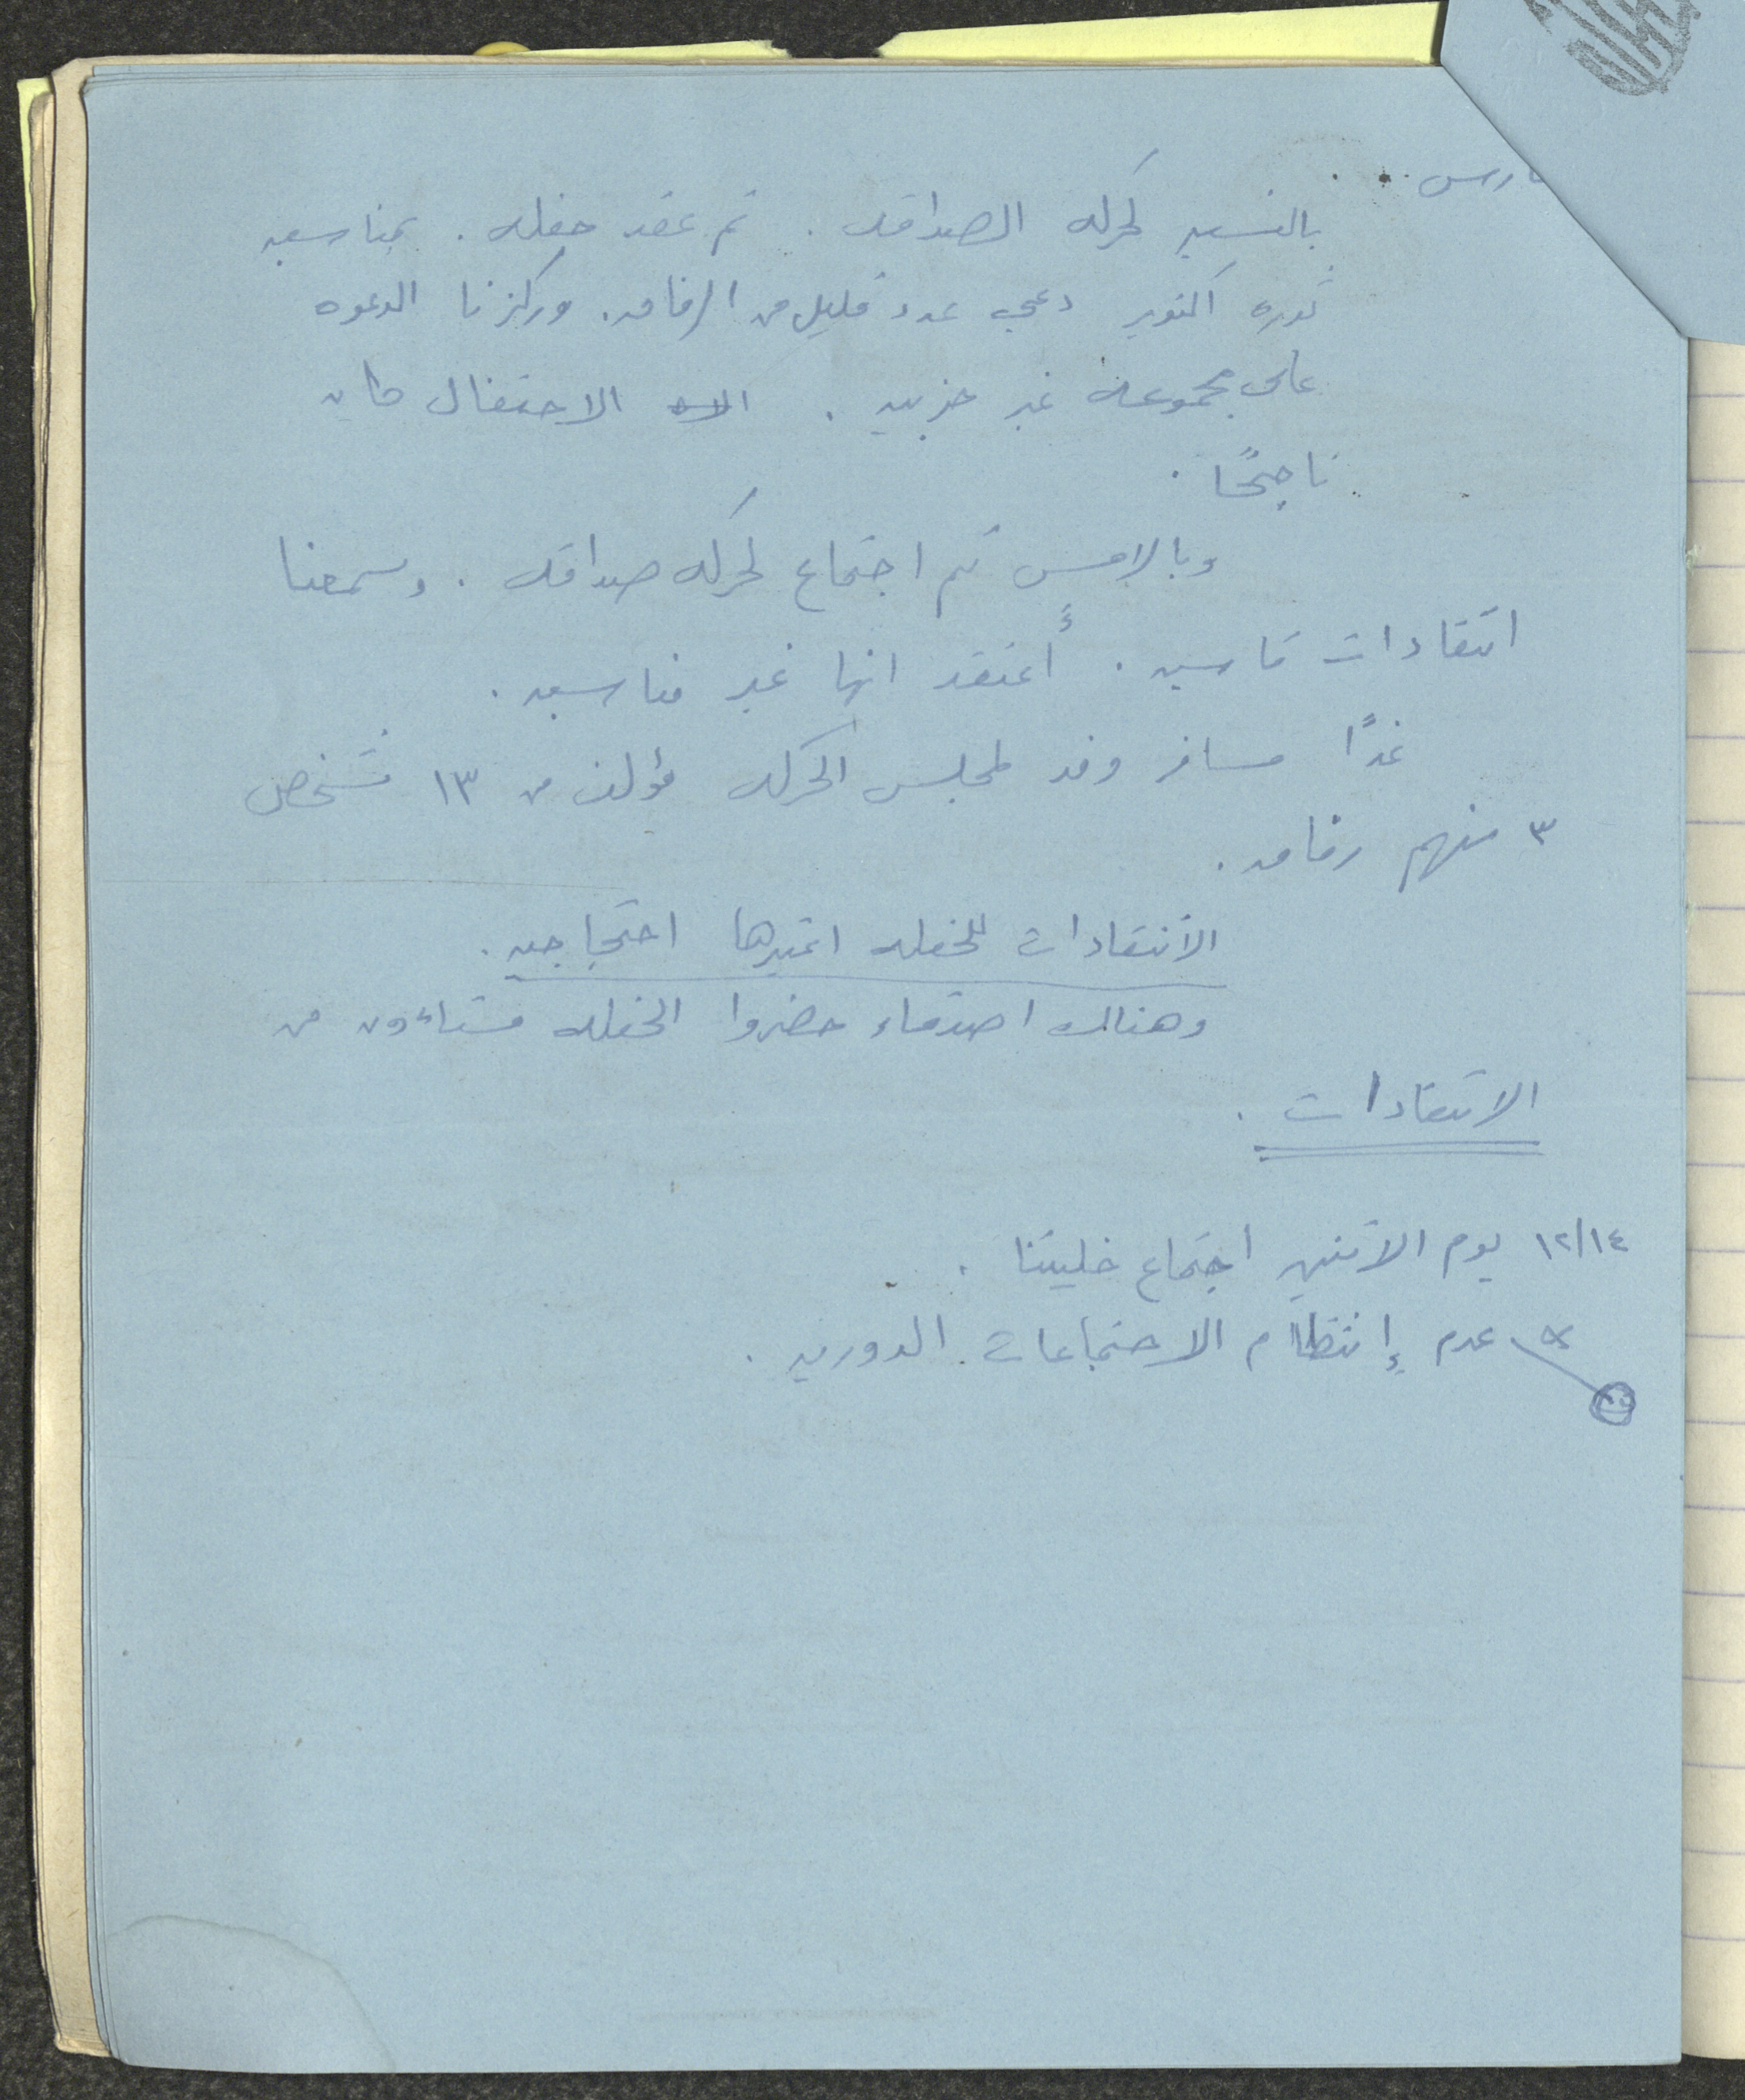 بالنسبه لحركه الصداقه . تم عقد حفله . بمناسبه
ثوره اكتوبر دعي عدد قليل من الرفاق . وركزنا الدعوه
على مجموعه غير حزبيه . الاحتفال كان
ناجحًا .
وبالامس تم اجتماع لحركه صداقه . وسمعنا
انتقادات قاسيه . أعتقد انها غير مناسبه .
غدًا مسافر وفد لمجلس الحركه مؤلف من ١٣ شخص
٣ منهم رفاق .
الأنتقادات للحفله اعتبرها احتجاجيه .
وهناك اصدقاء حضروا الحفله مستاءون من
الانتقادات .
١٢/١٤ يوم الاثنين اجتماع خليتنا .
عدم إنتظام الاجتماعات الدوريه .